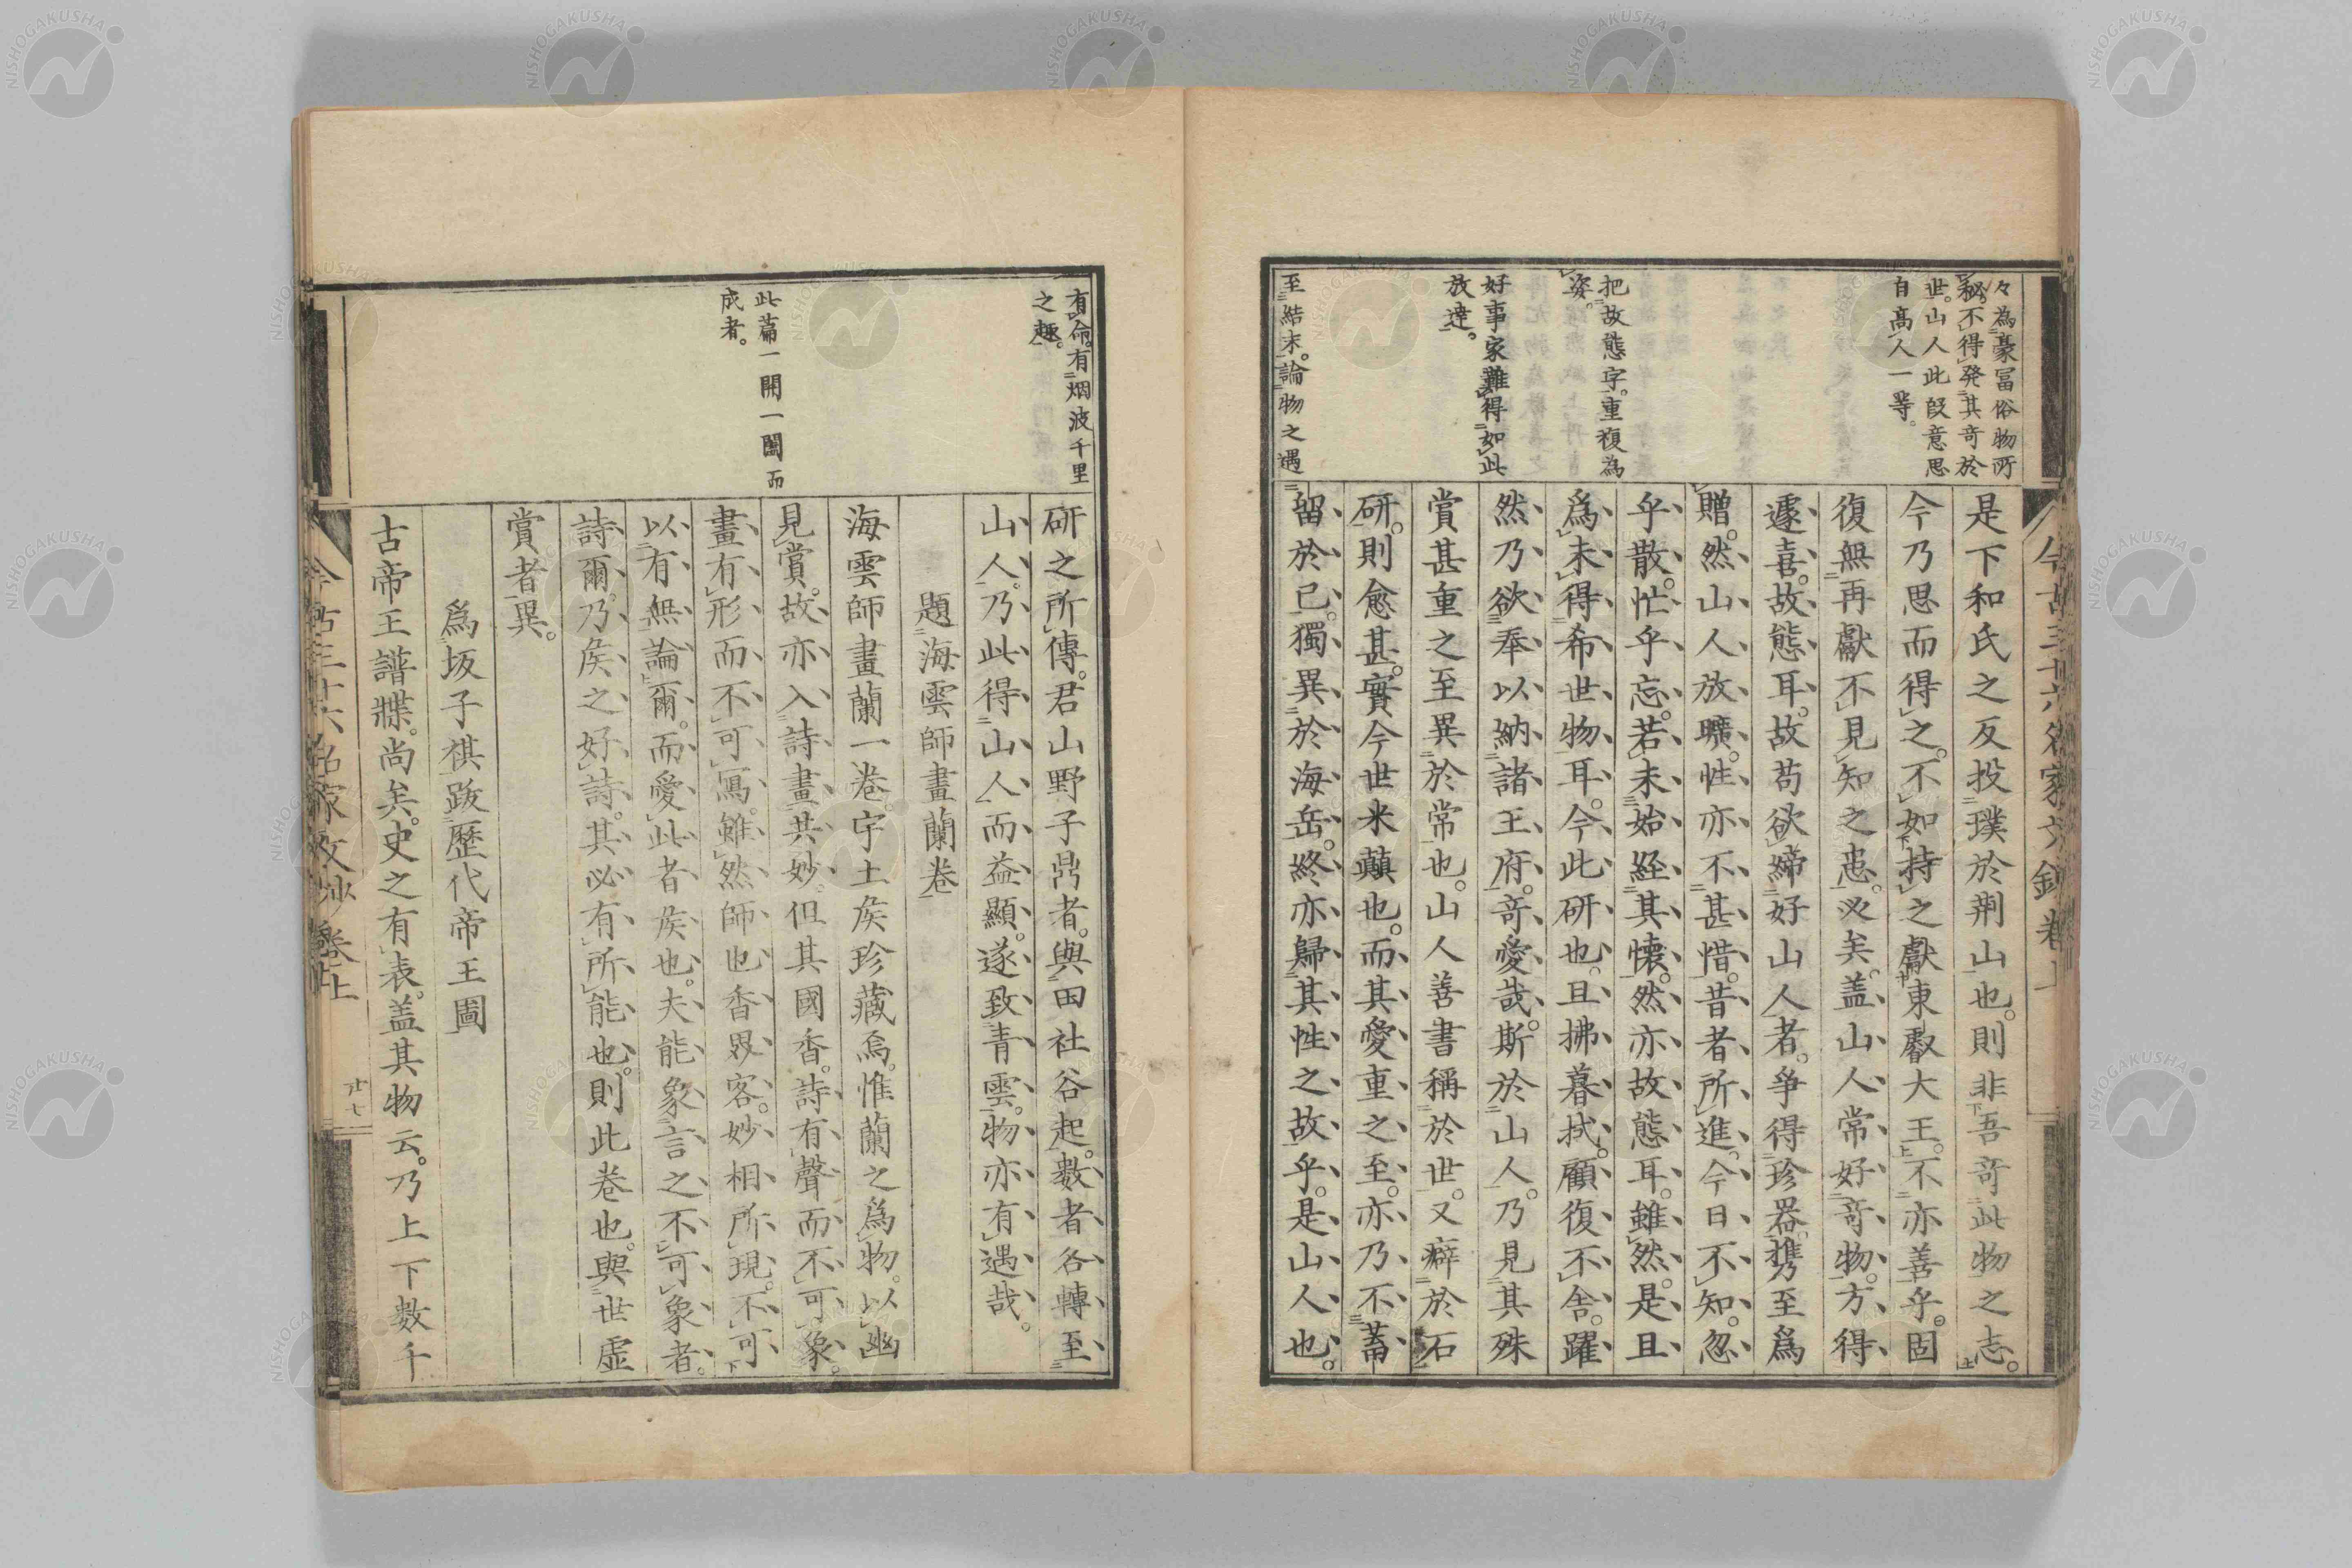 今古三十六名家文鈔卷上
々為豪冨俗物所
秘。不得発其奇於
世。山人此段意思
自高人一等。
把故態字。重復為
姿。
好事家難得如此
放達。
至結末。論物之遇
是下和氏之反投璞於荆山也。則非吾竒此物之志。
今乃思而得之。不如持之獻東叡大王。不亦善乎。固
復無再獻不見知之患。必矣。盖山人常好竒物。方得
遽喜。故態耳。故苟欲締好山人者。爭得珍器。携至爲
贈。然山人放曠。性亦不甚惜。昔者所進。今日不知。忽
乎散。忙乎忘。若未始経其懷。然亦故態耳。雖然。是且
爲未得希世物耳。今此研也。且拂暮拭。顧復不舎。躍
然乃欲奉以納諸王府。竒愛哉。斯於山人。乃見其殊
賞甚重之至異於常也。山人善書稱於世。又癖於石
研。則愈甚。實今世米顛也。而其愛重之至。亦乃不蓄
留於已。獨異於海岳。終亦歸其性之故乎。是山人也。
有命。有烟波千里
之趣。
此篇一開一闔而
成者。
研之所傳。君山野子鼎者。與田社谷起。数者各轉至
山人。乃此得山人而益顯。遂致青雲。物亦有遇哉。
題海雲師畫蘭卷
海雲師畫蘭一卷。宇土矦珍藏焉。惟蘭之爲物。以幽
見賞。故亦入詩畫共妙。但其國香。詩有聲而不可象。
畫有形而不可寫。雖然師也香界客。妙相所現。不可
以有無論爾。而愛此者矦也。夫能象言之不可象者。
詩爾。乃矦之好詩。其必有所能也。則此卷也。與世虚
賞者異。
爲坂子祺跋歷代帝王圖
古帝王譜牒。尚矣。史之有表。盖其物云。乃上下数千
今古三十六名家文抄卷上
廿七